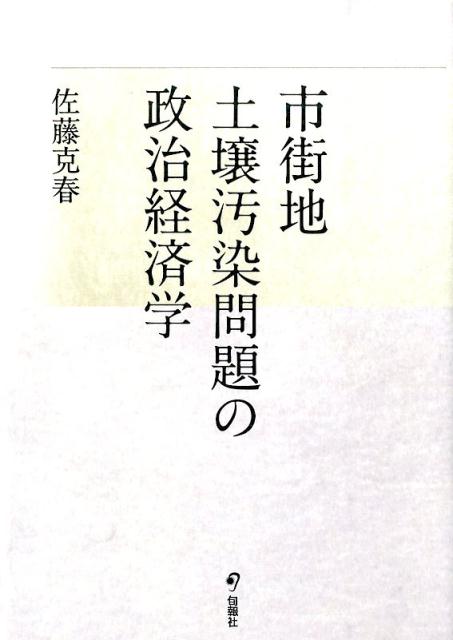 市街地
土壌汚染問題の
政治経済学
佐藤克春
旬報社